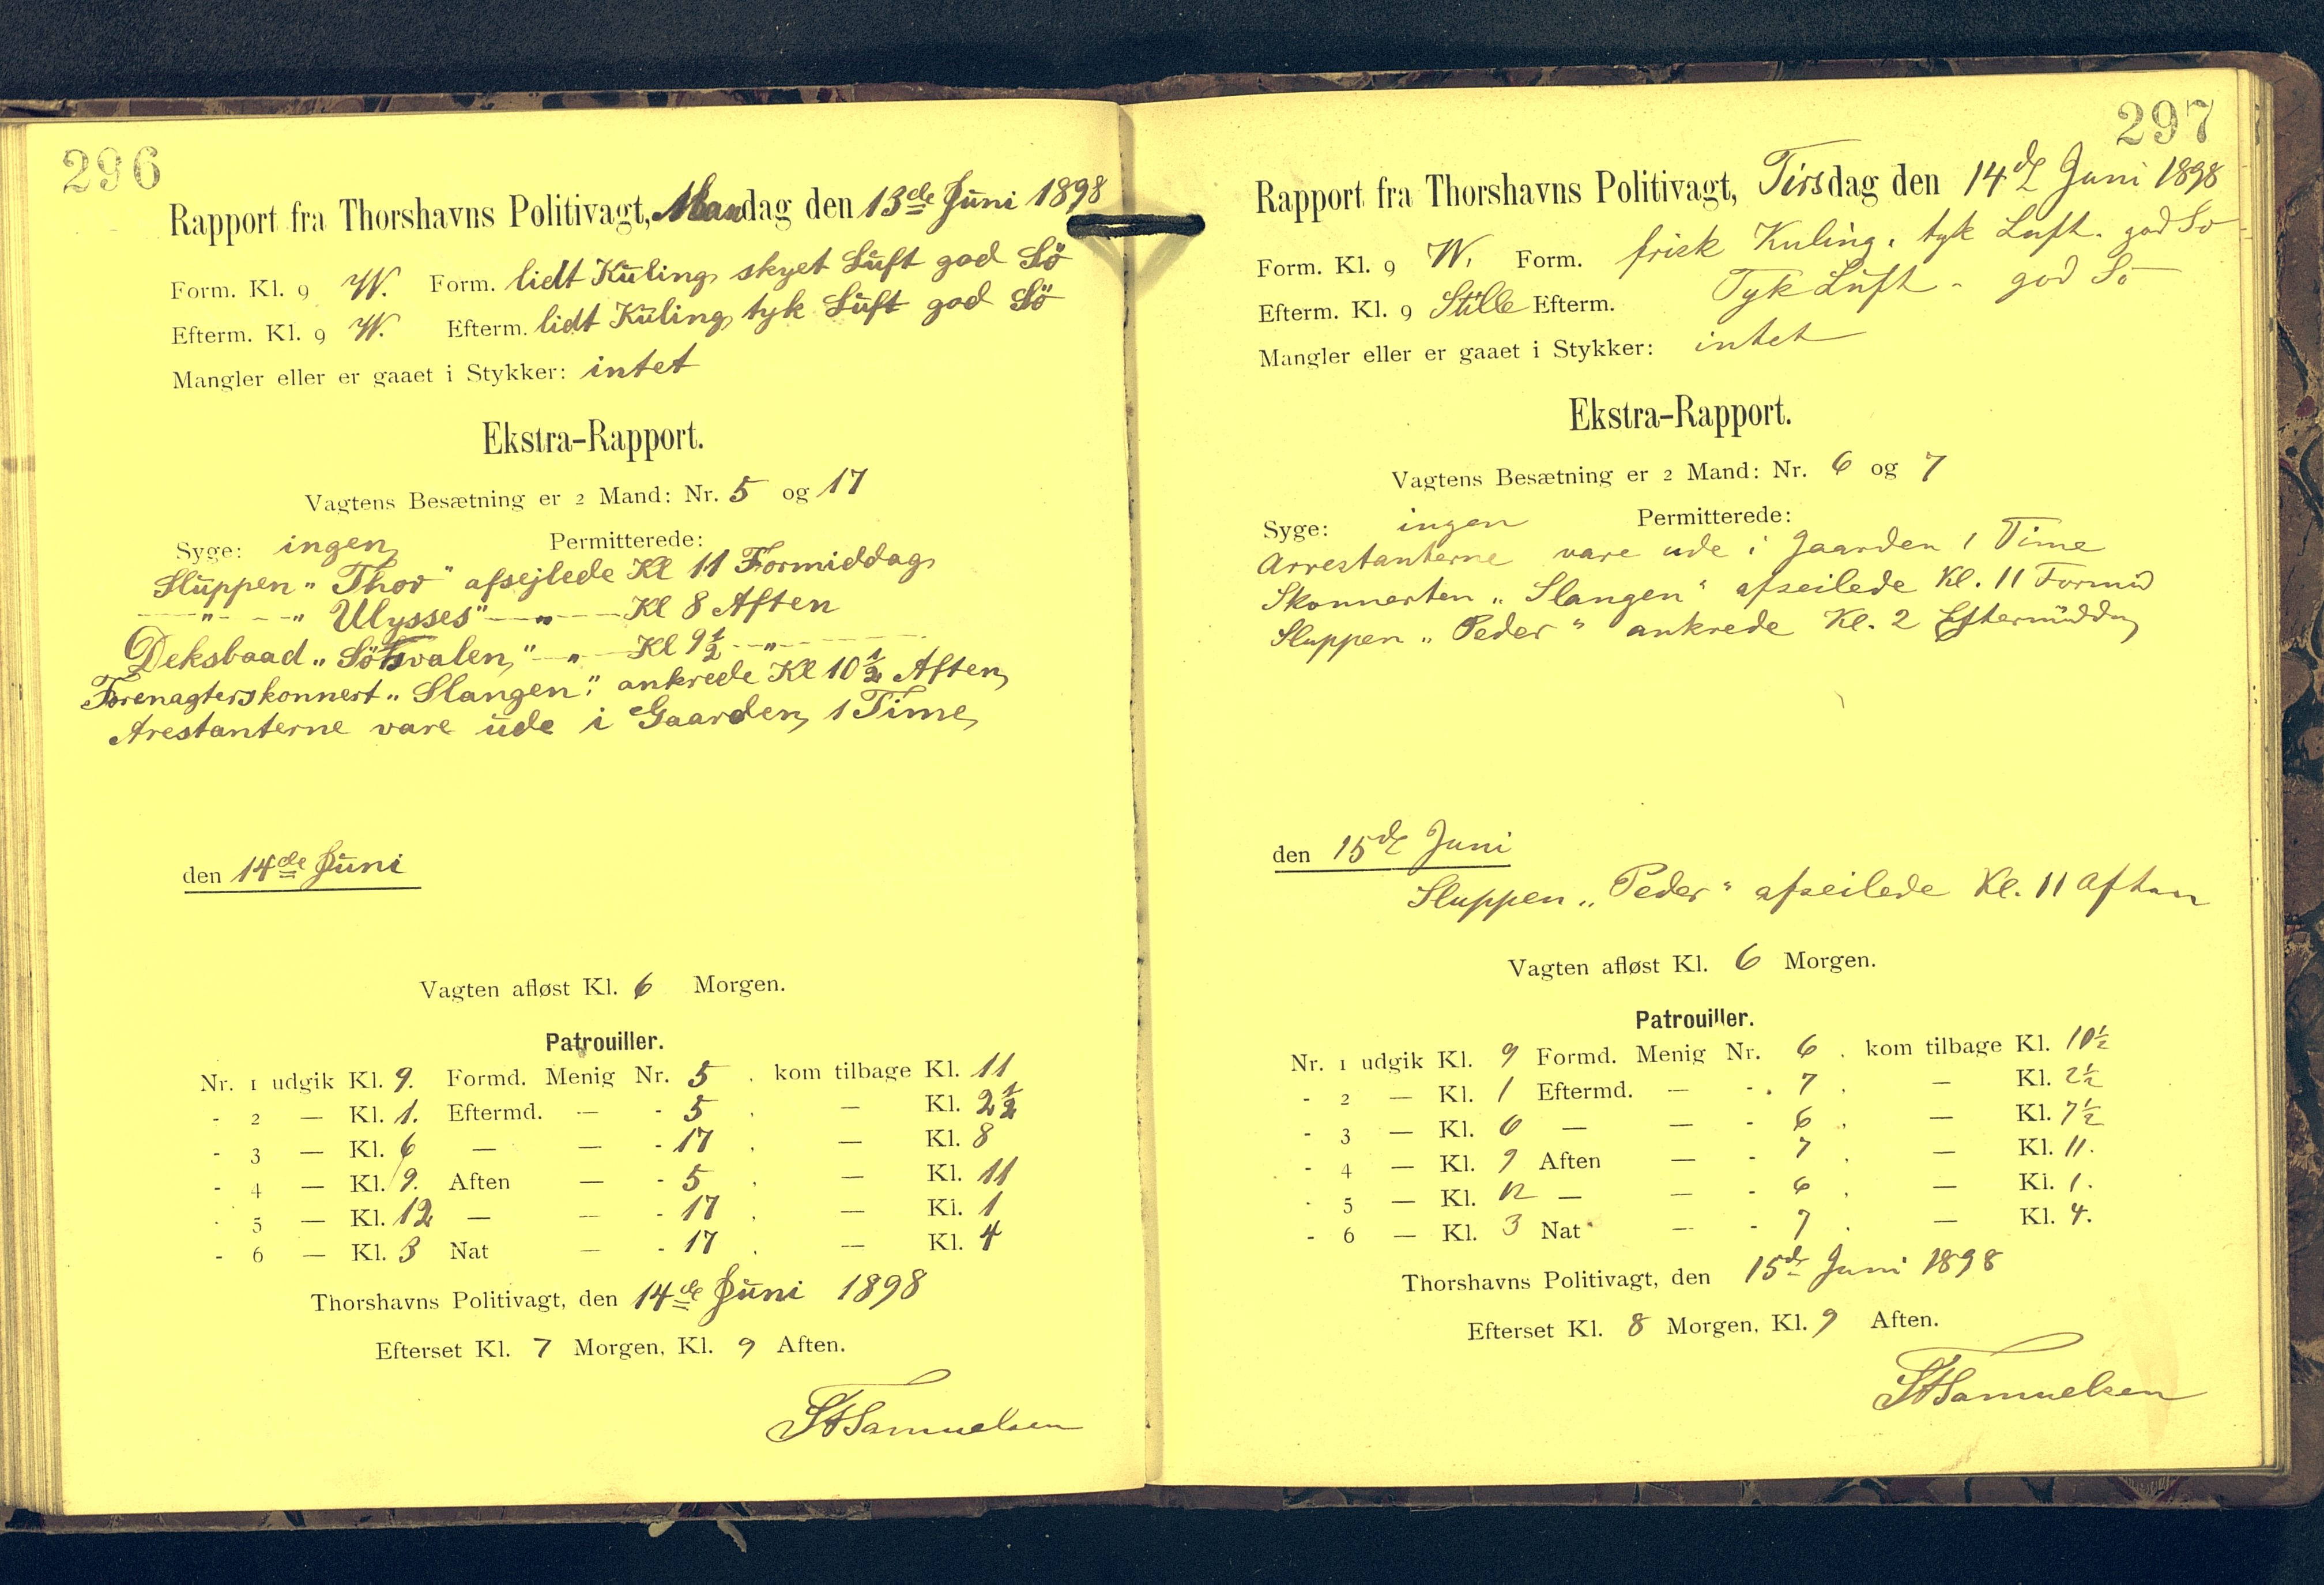 296
Rapport fra Thorshavns Politivagt, Mandag den 13de Juni 1898
Form. Kl. 9 W. Form. lidt Kuling, skyet Luft god Sö
Efterm. Kl. 9 W. Efterm. lidt Kuling, tyk Luft god Sö
Mangler eller er gaaet i Stykker: intet
Ekstra-Rapport.
Vagtens Besætning er 2 Mand: Nr. 5 og 17
Syge: ingen Permitterede:
Sluppen „Thor“ afsejlede Kl 11 Formiddag
—„— —„ Ulysses“ —„— Kl 8 Aften
Deksbaad „Söhvalen“ —„— Kl 9½ —„—
Forenagterskonnert „Slangen“ ankrede Kl 10½ Aften
Arestanterne vare ude i Gaarden 1 Time
den 14de Juni
Vagten afløst Kl. 6 Morgen.
Patrouiller.
Nr. 1 udgik Kl. 9. Formd. Menig Nr. 5 . kom tilbage Kl. 11
- 2 — Kl. 1. Eftermd. — - 5 . — Kl. 2½
- 3 — Kl. 6 — — - 17 . — Kl. 8
- 4 — Kl. 9. Aften — - 5 . — Kl. 11
- 5 — Kl. 12 — — - 17 . — Kl. 1
- 6 — Kl. 3 Nat — - 17 . — Kl. 4
Thorshavns Politivagt, den 14de Juni 1898
Efterset Kl. 7 Morgen, Kl. 9 Aften.
Samuelsen
297
Rapport fra Thorshavns Politivagt, Tirsdag den 14de Juni 1898
Form. Kl. 9 W. Form. frisk Kuling. tyk Luft. god So
Efterm. Kl. 9 Stille Efterm. Tyk Luft - god So
Mangler eller er gaaet i Stykker: intet
Ekstra-Rapport.
Vagtens Besætning er 2 Mand: Nr. 6 og 7
Syge: ingen Permitterede:
Arrestanterne vare ude i Gaarden 1 Time
Skonnerten „Slangen“ afseilede Kl. 11 Formid
Sluppen „Peder“ ankrede Kl. 2 Eftermiddag
den 15de Juni
Sluppen „Peder“ afseilede Kl. 11 Aften
Vagten afløst Kl. 6 Morgen.
Patrouiller.
Nr. 1 udgik Kl. 9 Formd. Menig Nr. 6 . kom tilbage Kl. 10½
- 2 — Kl. 1 Eftermd. — - 7 . — Kl. 2½
- 3 — Kl. 6 — — - 6 . — Kl. 7½
- 4 — Kl. 9 Aften — - 7 . — Kl. 11.
- 5 — Kl. 12 — — - 6 . — Kl. 1.
- 6 — Kl. 3 Nat — - 7 . — Kl. 4.
Thorshavns Politivagt, den 15de Juni 1898
Efterset Kl. 8 Morgen, Kl. 9 Aften.
Samuelsen